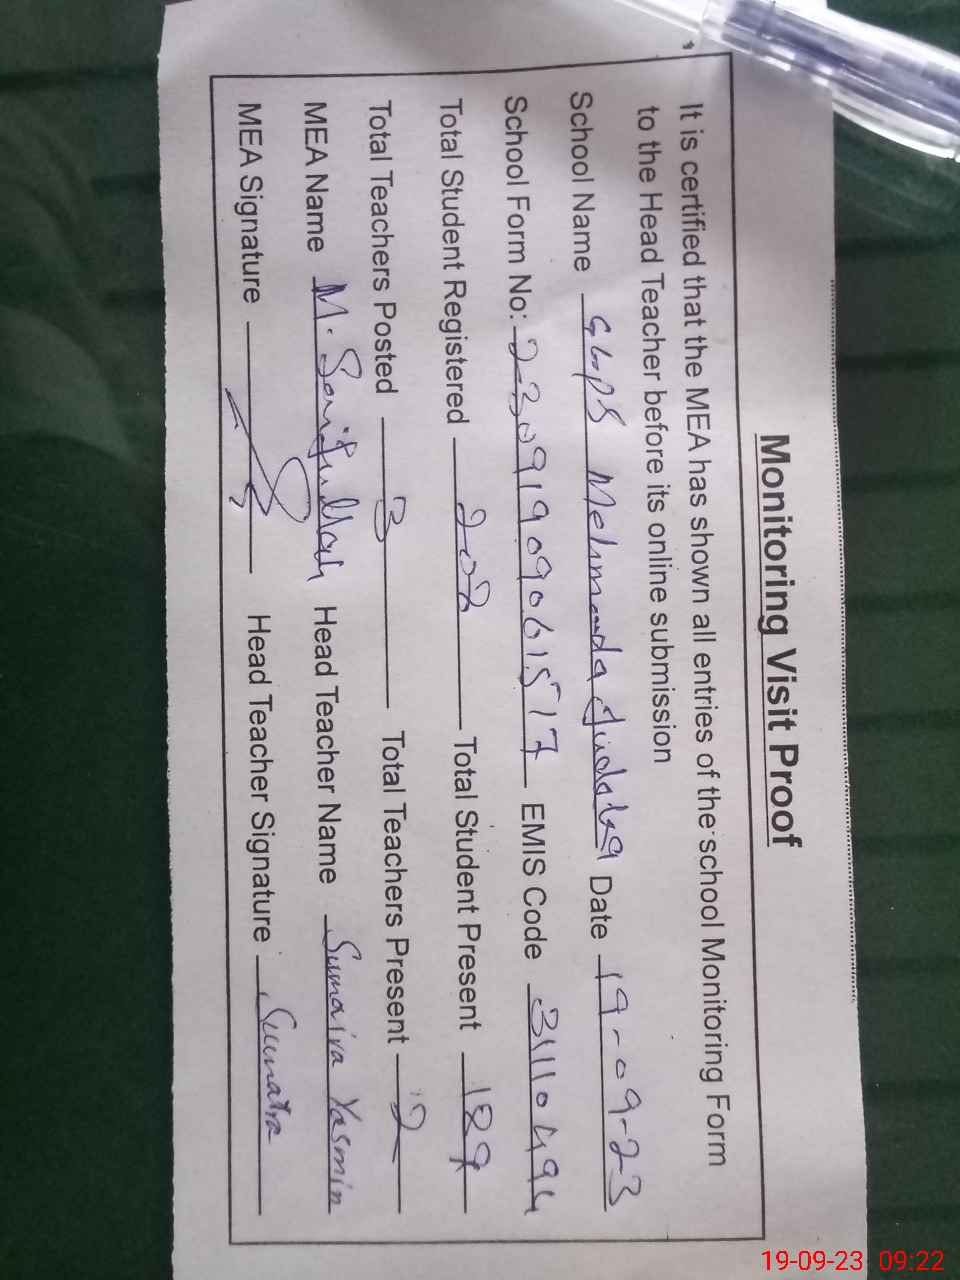 Monitoring Visit Proof
It is certified that the MEA has shown all entries of the school Monitoring Form
to the Head Teacher before its online submission
School Name GGPS Mehmooda Date 19-09-23
School Form No: 23091909061517 EMIS Code 31110494
Total Student Registered 202 Total Student Present 189
Total Teachers Posted 3 Total Teachers Present 2
MEA Name M. Samiullah Head Teacher Name Sumaira Yasmin
MEA Signature Head Teacher Signature Sumaira
19-09-23 09:22